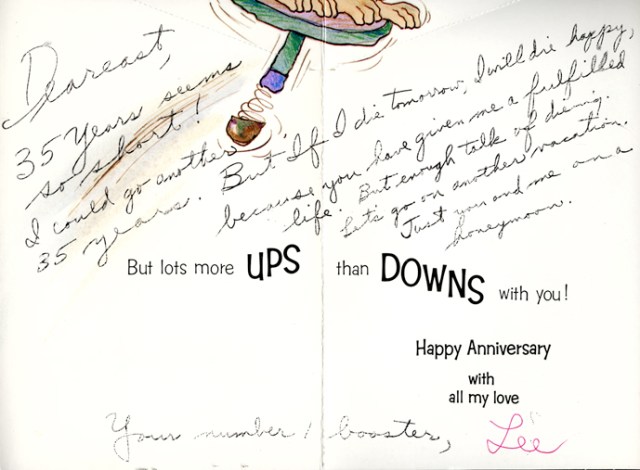 Deareast,
35 years seems
so short!
I could go another
35 years. But If I die tomorrow, I will die happy,
because you have given me a fulfilled
life. But enough talk of dieing.
Let's go on another vacation.
Just you and me on a
honeymoon.
But lots more UPS than DOWNS with you!
Happy Anniversary
with
all my love
Your number 1 booster, Lee